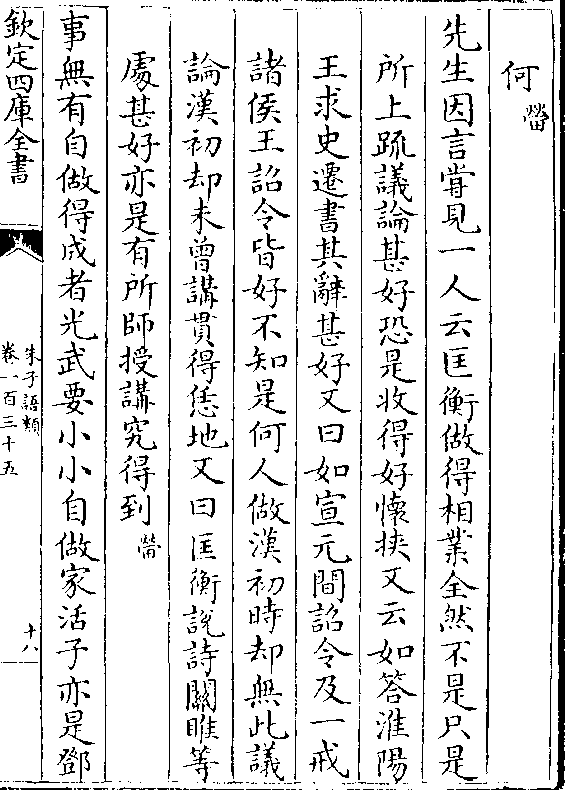 何㽦
先生因言嘗見一人云匡衡做得相業全然不是只是
所上疏議論甚好恐是收得好懷挾又云如答淮陽
王求史遷書其辭甚好又曰如宣元間詔令及一戒
諸侯王詔令皆好不知是何人做漢初時却無此議
論漢初却未曾講貫得恁地又曰匡衡說詩關雎等
處甚好亦是有所師授講究得到㽦
事無有自做得成者光武要小小自做家活子亦是鄧
欽定四庫全書
朱子語類
卷一百三十五
十八